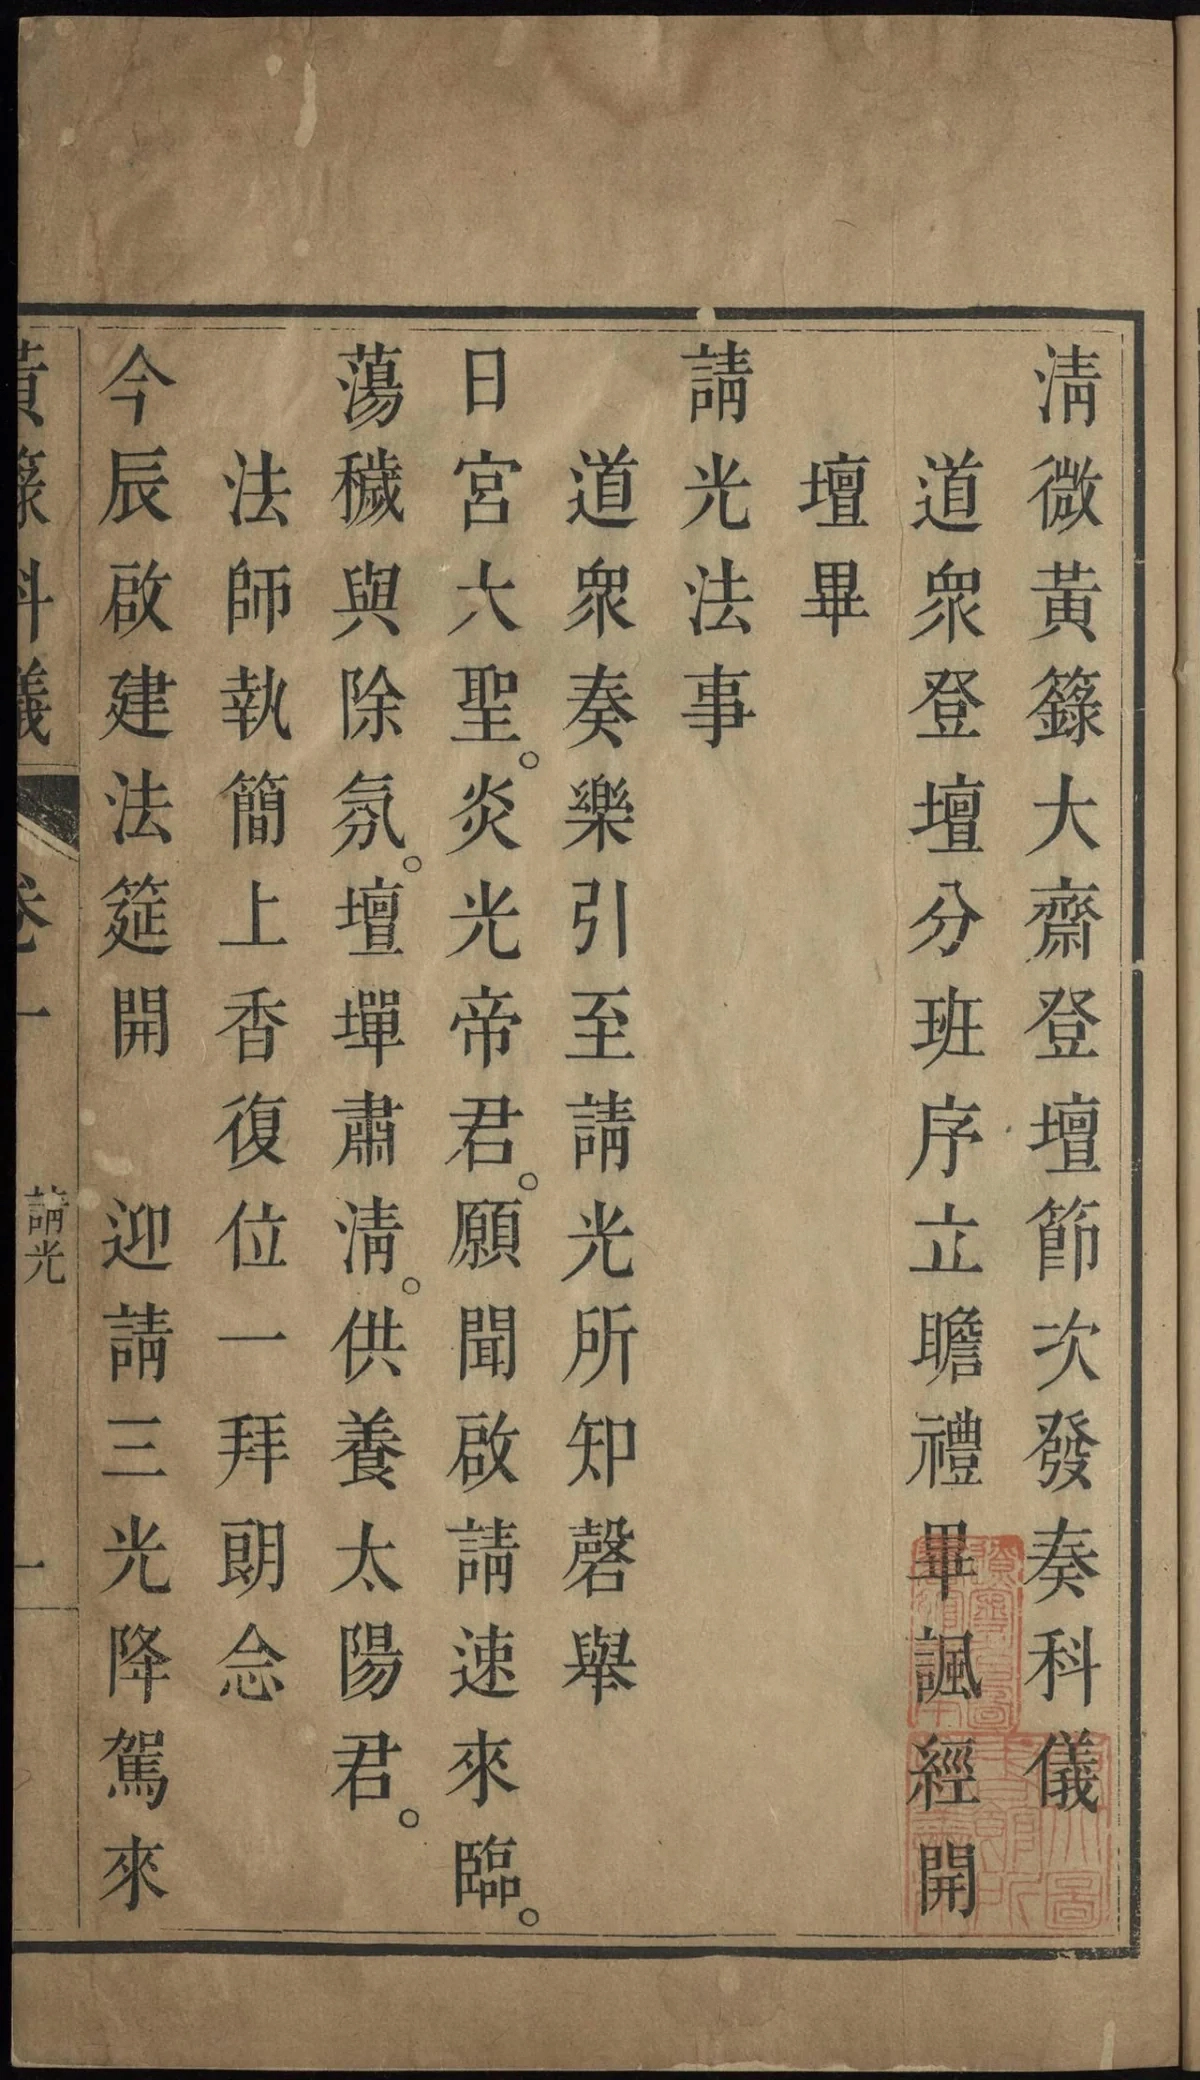 清微黃籙大齋登壇節次發奏科儀
道衆登壇分班序立瞻禮畢諷經開
壇畢
請光法事
道衆奏樂引至請光所知磬舉
日宮大聖。炎光帝君。願聞啟請速來臨。
蕩穢與除氛。壇墠肅清。供養太陽君。
法師執簡上香復位一拜朗念
今辰啟建法筵開　迎請三光降駕來
黃籙科儀　卷一　請光　一